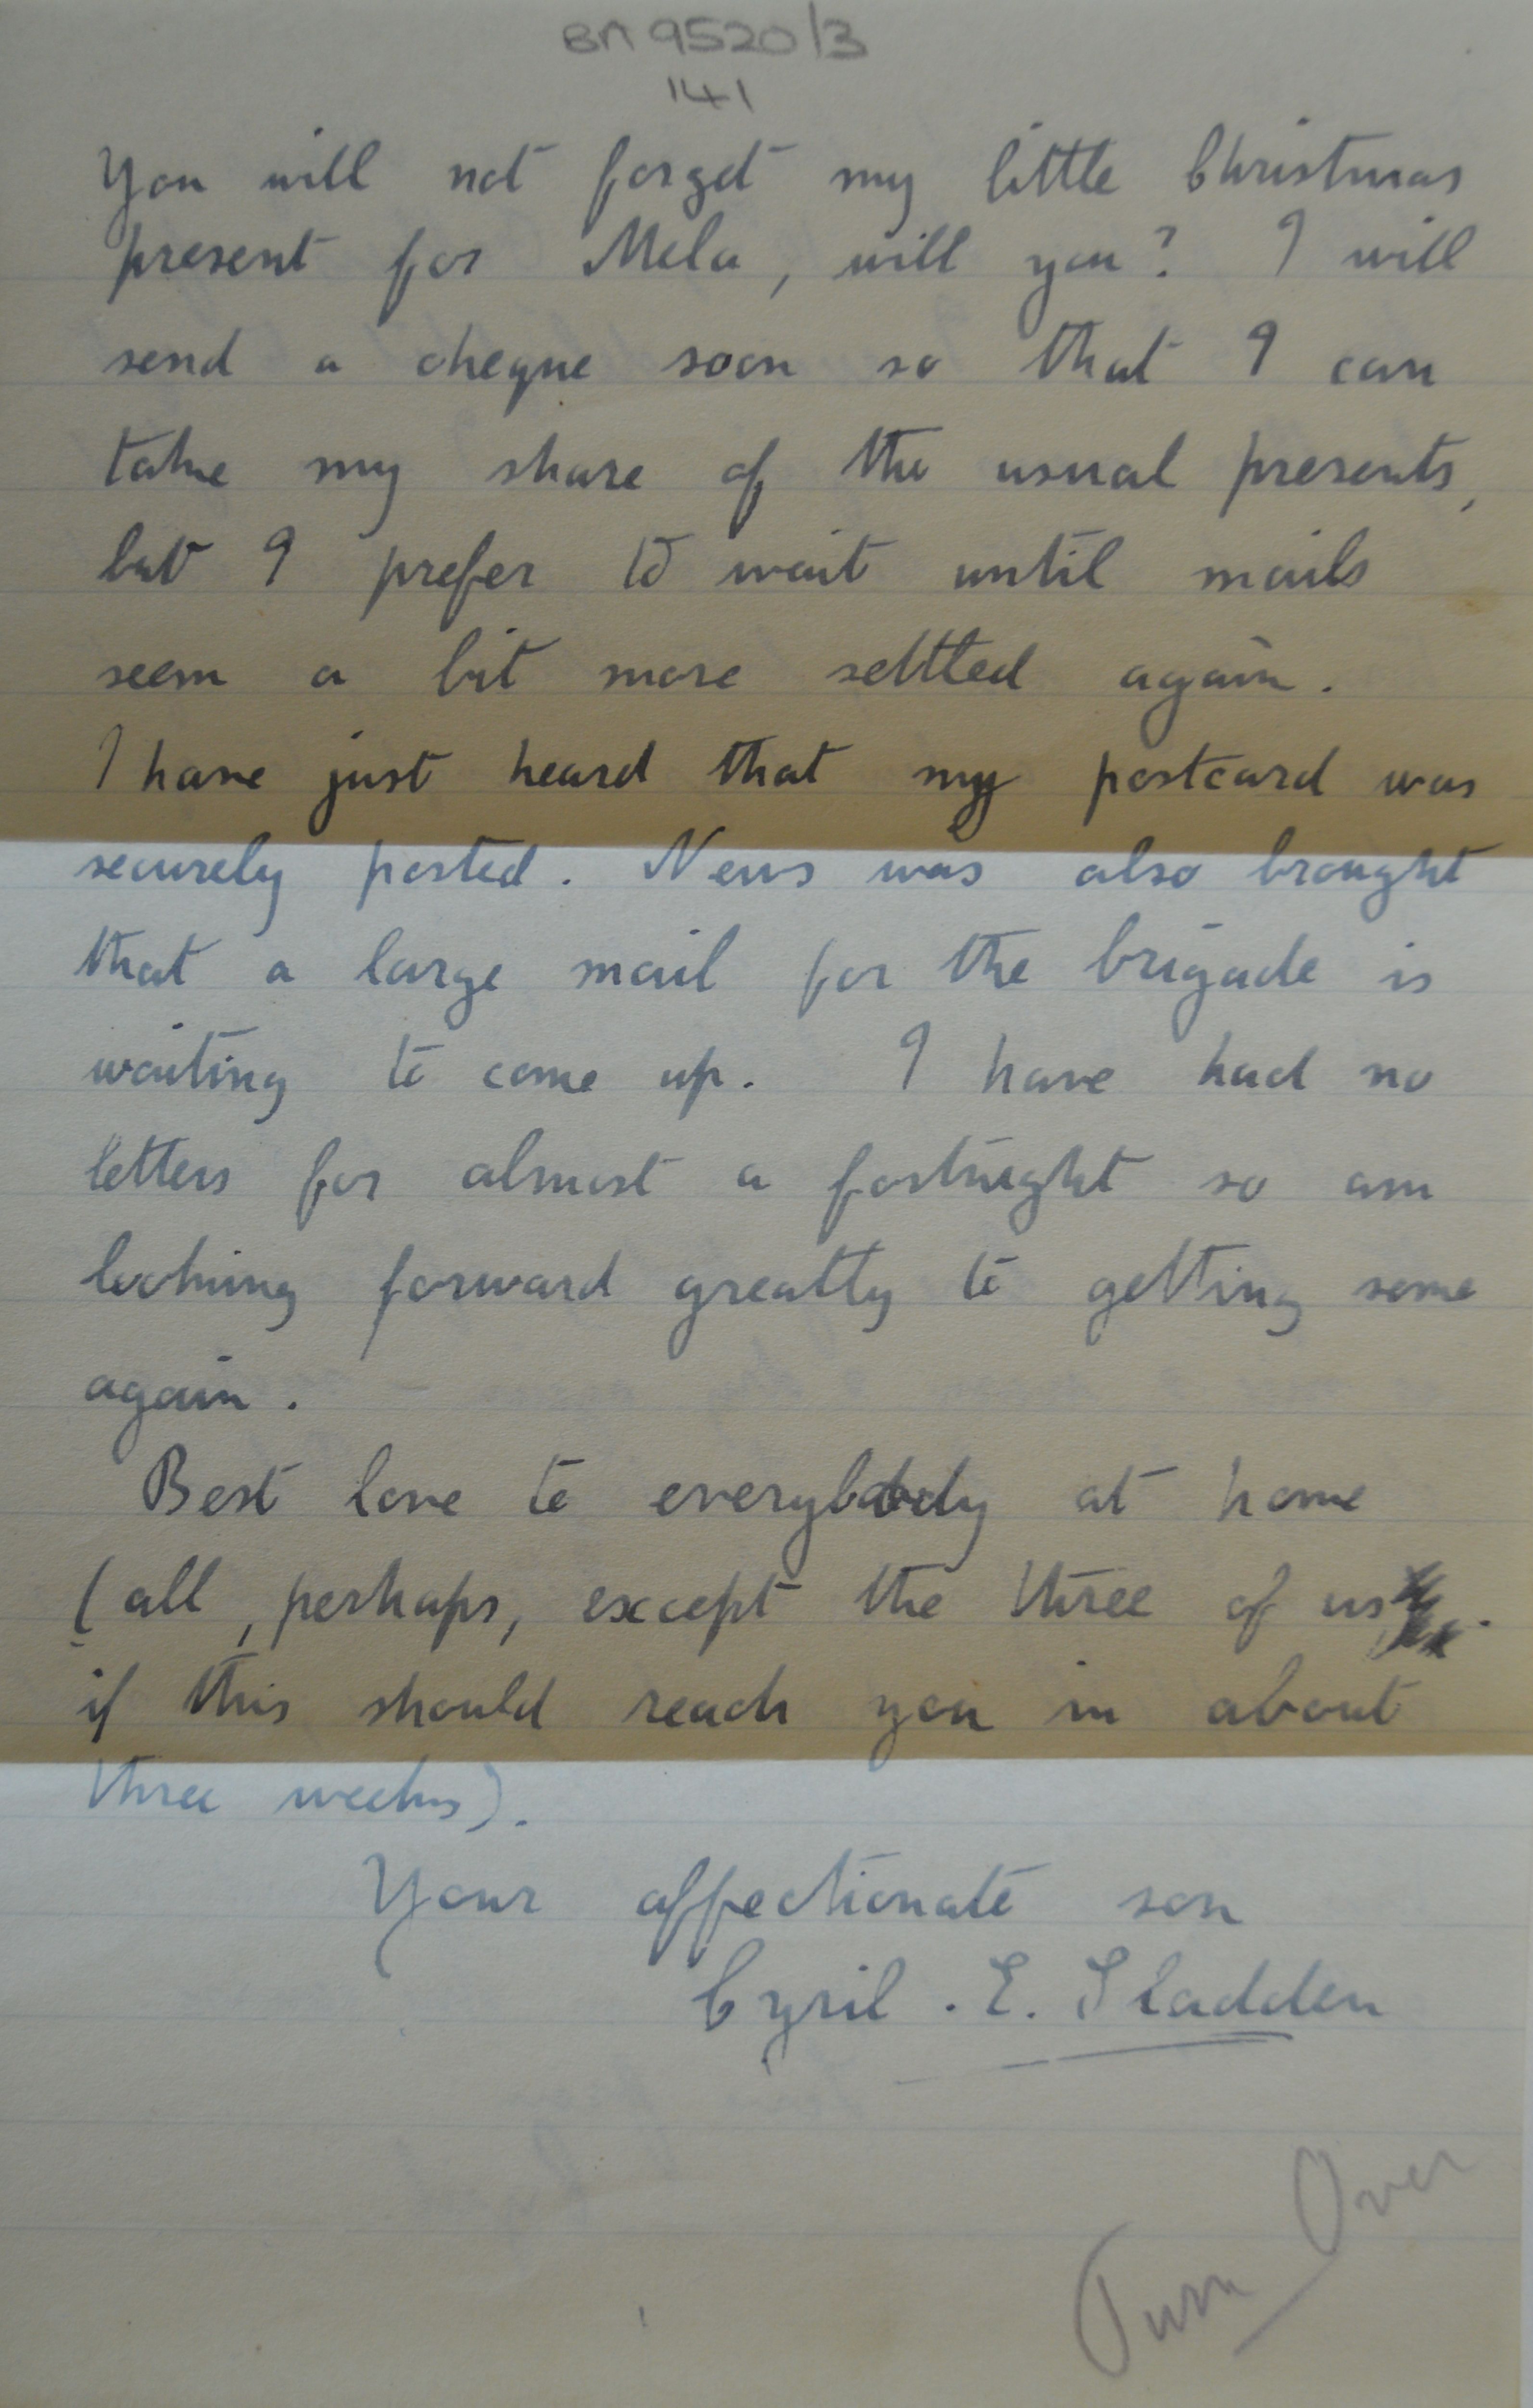 BA 9520/3
141
You will not forget my little Christmas
present for Mela, will you? I will
send a cheque soon so that I can
take my share of the usual presents,
but I prefer to wait until mails
seem a bit more settled again.
I have just heard that my postcard was
securely posted. News was also brought
that a large mail for the brigade is
waiting to come up. I have had no
letters for almost a fortnight so am
looking forward greatly to getting some
again.
Best love to everybody at home
(all, perhaps, except the three of us.
if this should reach you in about
three weeks).
Your affectionate son
Cyril. E. Sladden
Turn Over